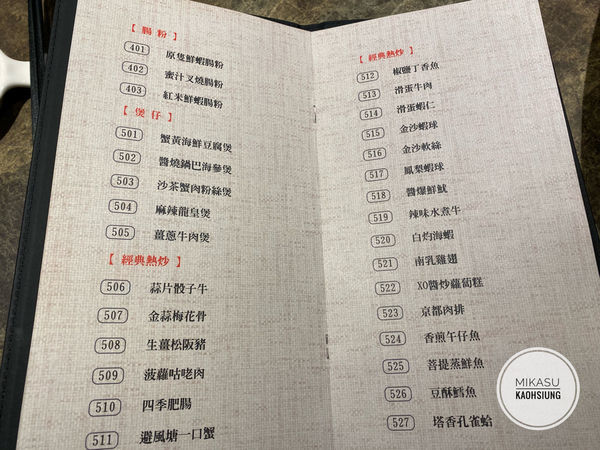 【 腸 粉 】
401 原隻鮮蝦腸粉
402 蜜汁叉燒腸粉
403 紅米鮮蝦腸粉
【 煲 仔 】
501 蟹黃海鮮豆腐煲
502 醬燒鍋巴海參煲
503 沙茶蟹肉粉絲煲
504 麻辣龍皇煲
505 薑蔥牛肉煲
【 經典熱炒 】
506 蒜片骰子牛
507 金蒜梅花骨
508 生薑松阪豬
509 菠蘿咕咾肉
510 四季肥腸
511 避風塘一口蟹
【 經典熱炒 】
512 椒鹽丁香魚
513 滑蛋牛肉
514 滑蛋蝦仁
515 金沙蝦球
516 金沙軟絲
517 鳳梨蝦球
518 醬爆鮮魷
519 辣味水煮牛
520 白灼海蝦
521 南乳雞翅
522 XO醬炒蘿蔔糕
523 京都肉排
524 香煎午仔魚
525 菩提蒸鮮魚
526 豆酥鱈魚
527 塔香孔雀蛤
MIKASU
KAOHSIUNG